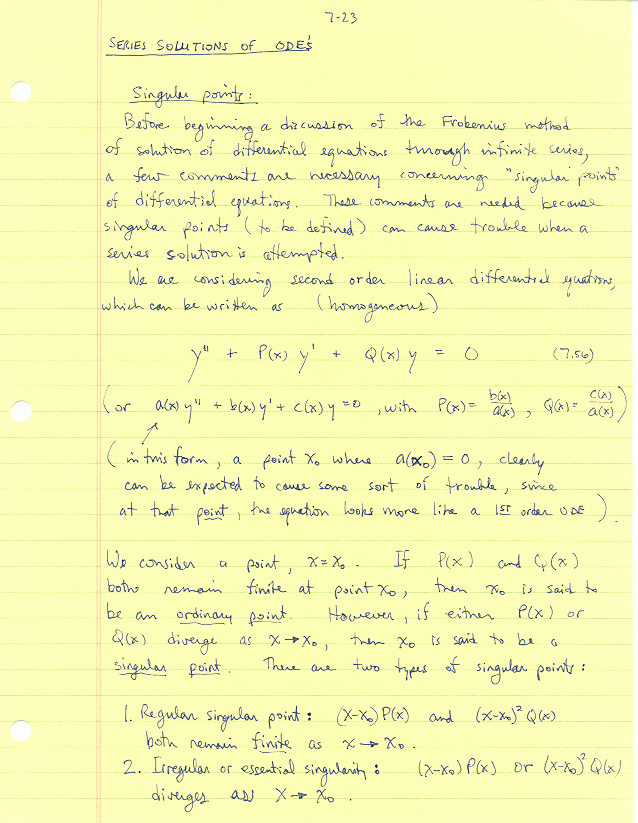 7-23
SERIES SOLUTIONS OF ODE's
Singular points:
Before beginning a discussion of the Frobenius method
of solution of differential equations through infinite series,
a few comments are necessary concerning "singular points"
of differential equations. These comments are needed because
singular points (to be defined) can cause trouble when a
series solution is attempted.
We are considering second order linear differential equations,
which can be written as (homogeneous)
y'' + P(x) y' + Q(x) y = 0 (7.56)
(or a(x) y'' + b(x) y' + c(x) y = 0, with P(x) = b(x)/a(x), Q(x) = c(x)/a(x))
(in this form, a point x₀ where a(x₀) = 0, clearly
can be expected to cause some sort of trouble, since
at that point, the equation looks more like a 1ST order ODE).
We consider a point, x = x₀. If P(x) and Q(x)
both remain finite at point x₀, then x₀ is said to
be an ordinary point. However, if either P(x) or
Q(x) diverge as x → x₀, then x₀ is said to be a
singular point. There are two types of singular points:
1. Regular singular point: (x-x₀) P(x) and (x-x₀)² Q(x)
both remain finite as x → x₀.
2. Irregular or essential singularity: (x-x₀) P(x) or (x-x₀)² Q(x)
diverges as x → x₀.